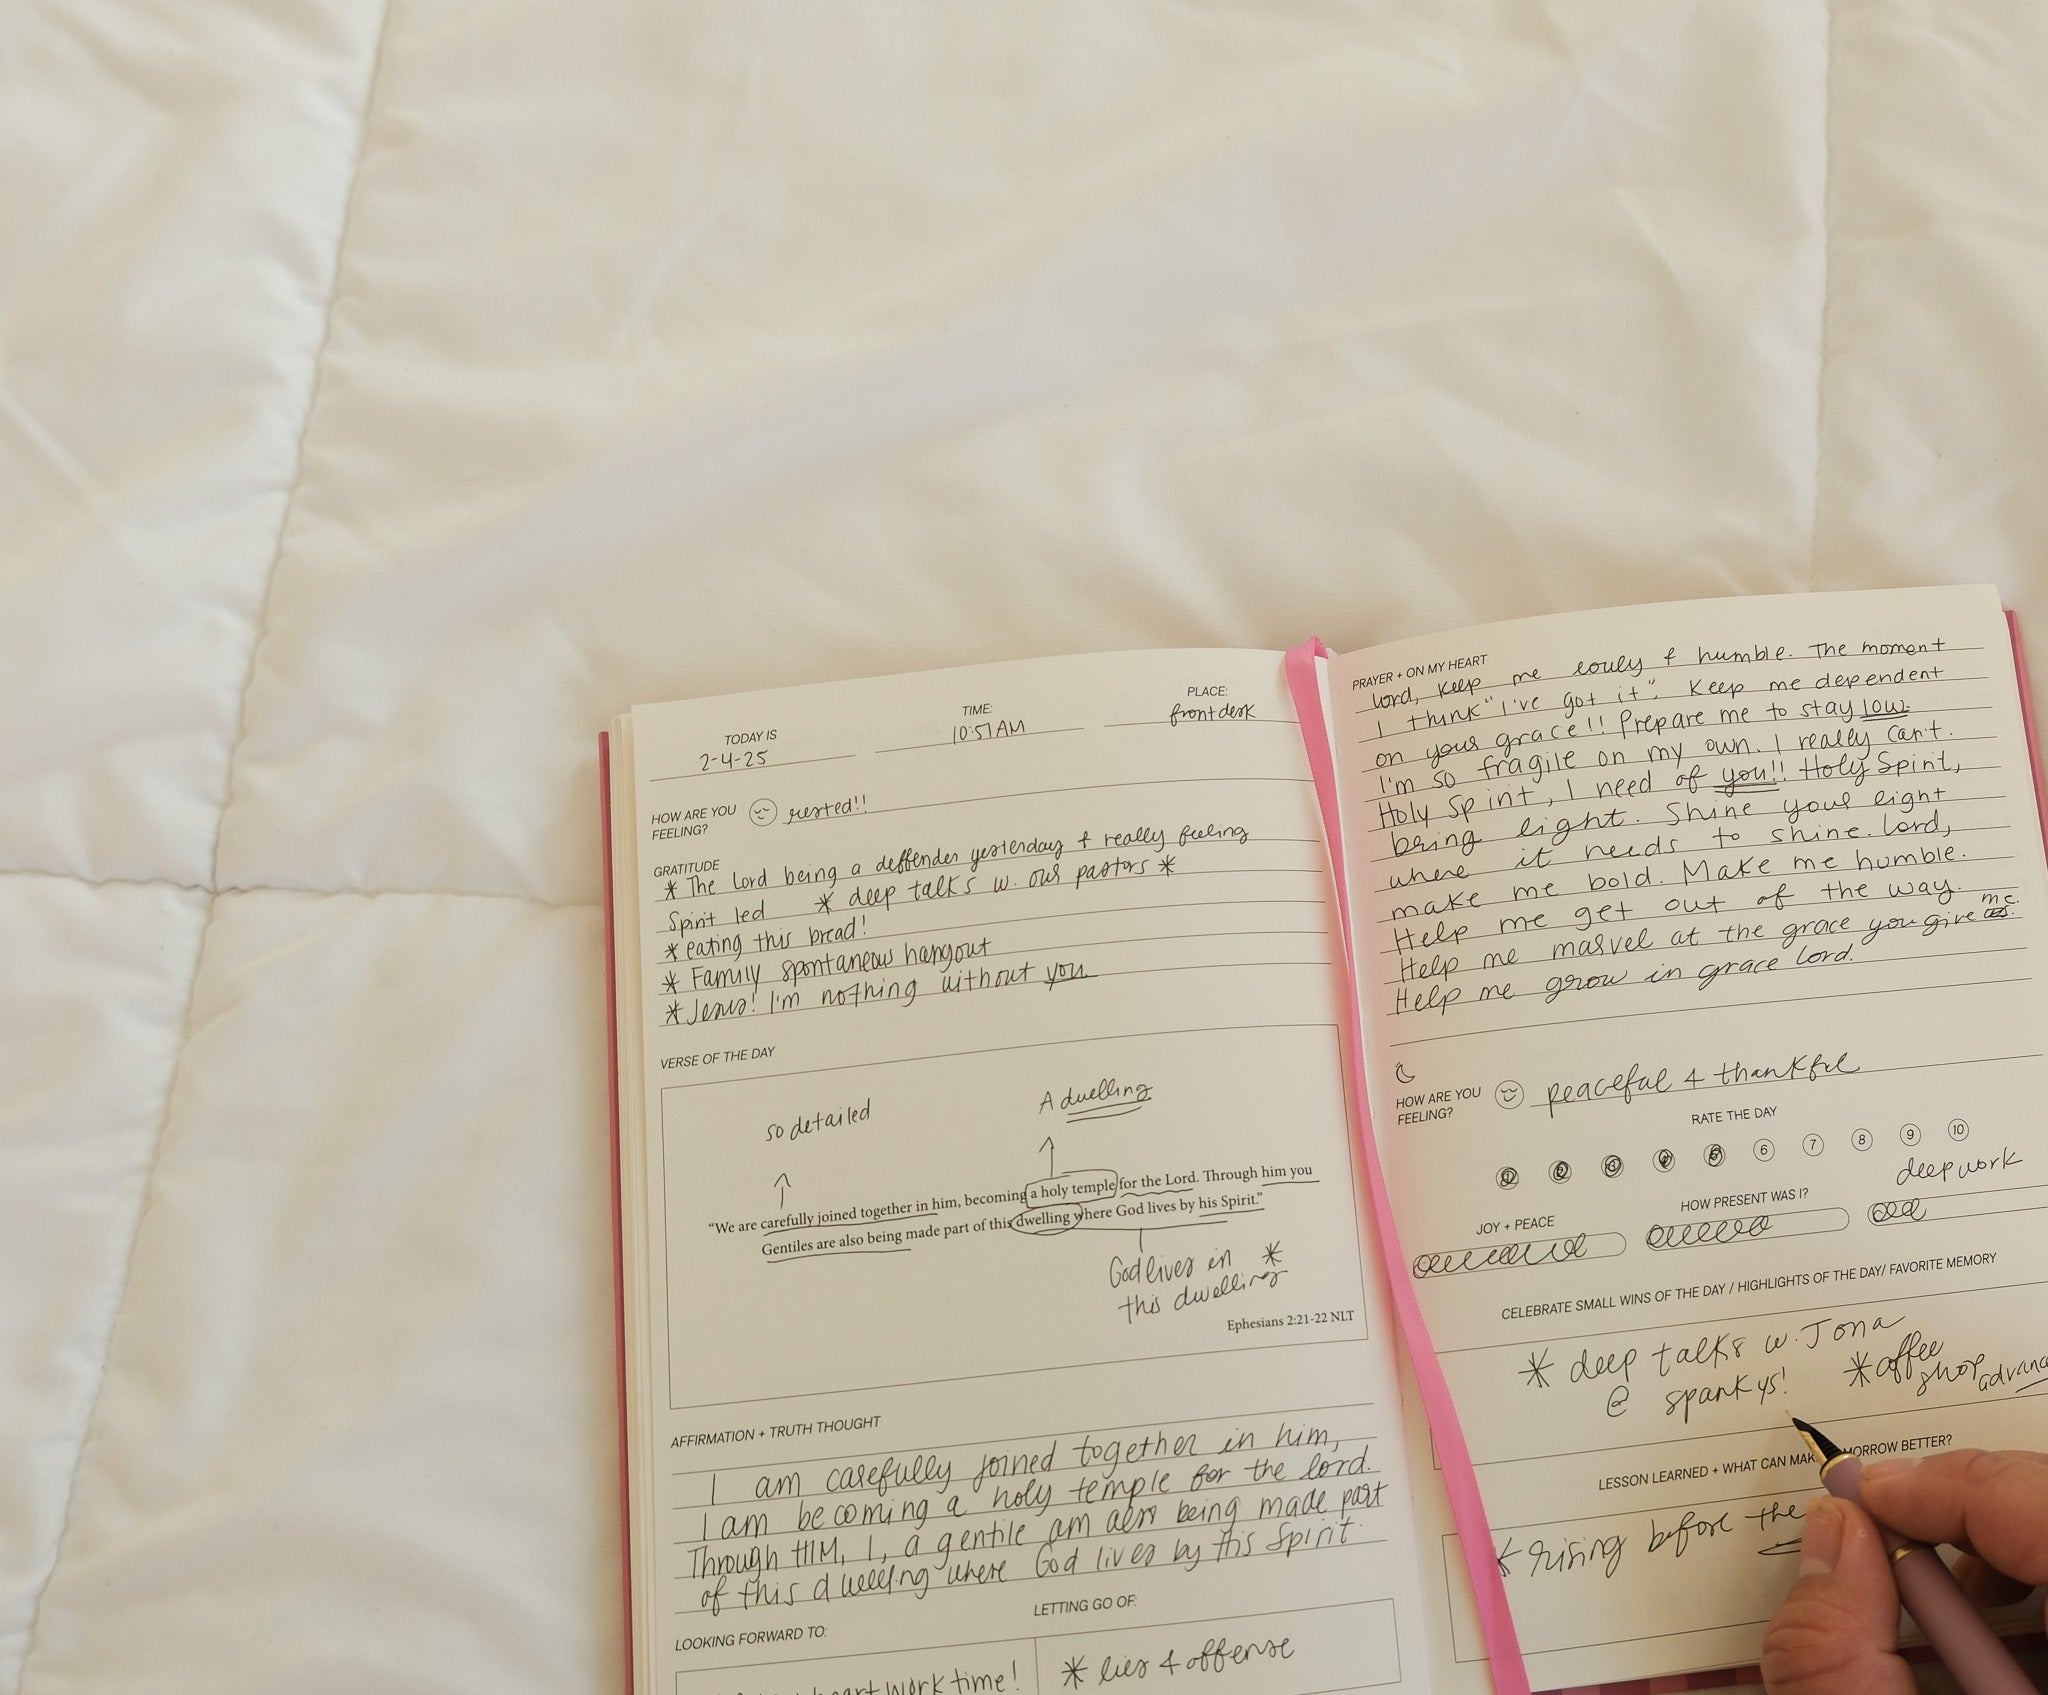 TODAY IS
2-4-25
TIME:
10:57 AM
PLACE:
front desk
HOW ARE YOU
FEELING?
rested!!
GRATITUDE
* The Lord being a deffender yesterday & really feeling
Spirit led * deep talks w. our pastors *
* eating this bread!
* Family spontaneous hangout
* Jesus! I'm nothing without you.
VERSE OF THE DAY
so detailed
A dwelling
"We are carefully joined together in him, becoming a holy temple for the Lord. Through him you
Gentiles are also being made part of this dwelling where God lives by his Spirit."
God lives in *
this dwelling
Ephesians 2:21-22 NLT
AFFIRMATION + TRUTH THOUGHT
I am carefully joined together in him,
I am becoming a holy temple for the lord.
Through HIM, I, a gentile am also being made part
of this dwelling where God lives by His Spirit.
LOOKING FORWARD TO:
work time!
LETTING GO OF:
* lies & offense
PRAYER + ON MY HEART
Lord, keep me lowly & humble. The moment
I think "I've got it". Keep me dependent
on your grace!! Prepare me to stay low.
I'm so fragile on my own. I really can't.
Holy Spirit, I need of you!! Holy Spirit,
bring light. Shine your light
where it needs to shine. Lord,
make me bold. Make me humble.
Help me get out of the way.
Help me marvel at the grace you give me.
Help me grow in grace Lord.
HOW ARE YOU
FEELING?
peaceful & thankful
RATE THE DAY
1 2 3 4 5 6 7 8 9 10
JOY + PEACE
HOW PRESENT WAS I?
deep work
CELEBRATE SMALL WINS OF THE DAY / HIGHLIGHTS OF THE DAY/ FAVORITE MEMORY
* deep talks w. Jona
@ spankys!
* coffee
shop
LESSON LEARNED + WHAT CAN MAK MORROW BETTER?
* rising before the